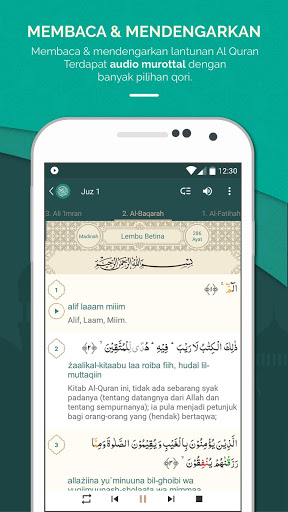 MEMBACA & MENDENGARKAN
Membaca & mendengarkan lantunan Al Quran
Terdapat audio murottal dengan
banyak pilihan qori.
12:30
Juz 1
3. Ali 'Imran
2. Al-Baqarah
1. Al-Fatihah
Madinah
Lembu Betina
286
Ayat
بِسْمِ اللَّهِ الرَّحْمَٰنِ الرَّحِيمِ
1
الۤمّۤ ۚ ﴿١﴾
alif laaam miiim
Alif, Laam, Miim.
2
ذٰلِكَ الْكِتٰبُ لَا رَيْبَ ۛ فِيْهِ ۛ هُدًى لِّلْمُتَّقِيْنَ ﴿٢﴾
żaalikal-kitaabu laa roiba fiih, hudal lil-
muttaqiin
Kitab Al-Quran ini, tidak ada sebarang syak
padanya (tentang datangnya dari Allah dan
tentang sempurnanya); ia pula menjadi petunjuk
bagi orang-orang yang (hendak) bertaqwa;
3
الَّذِيْنَ يُؤْمِنُوْنَ بِالْغَيْبِ وَيُقِيْمُوْنَ الصَّلٰوةَ وَمِمَّا
رَزَقْنٰهُمْ يُنْفِقُوْنَ ۙ ﴿٣﴾
allażiina yu`minuuna bil-ghoibi wa
yuqiimuunash-sholaata wa mimmaa